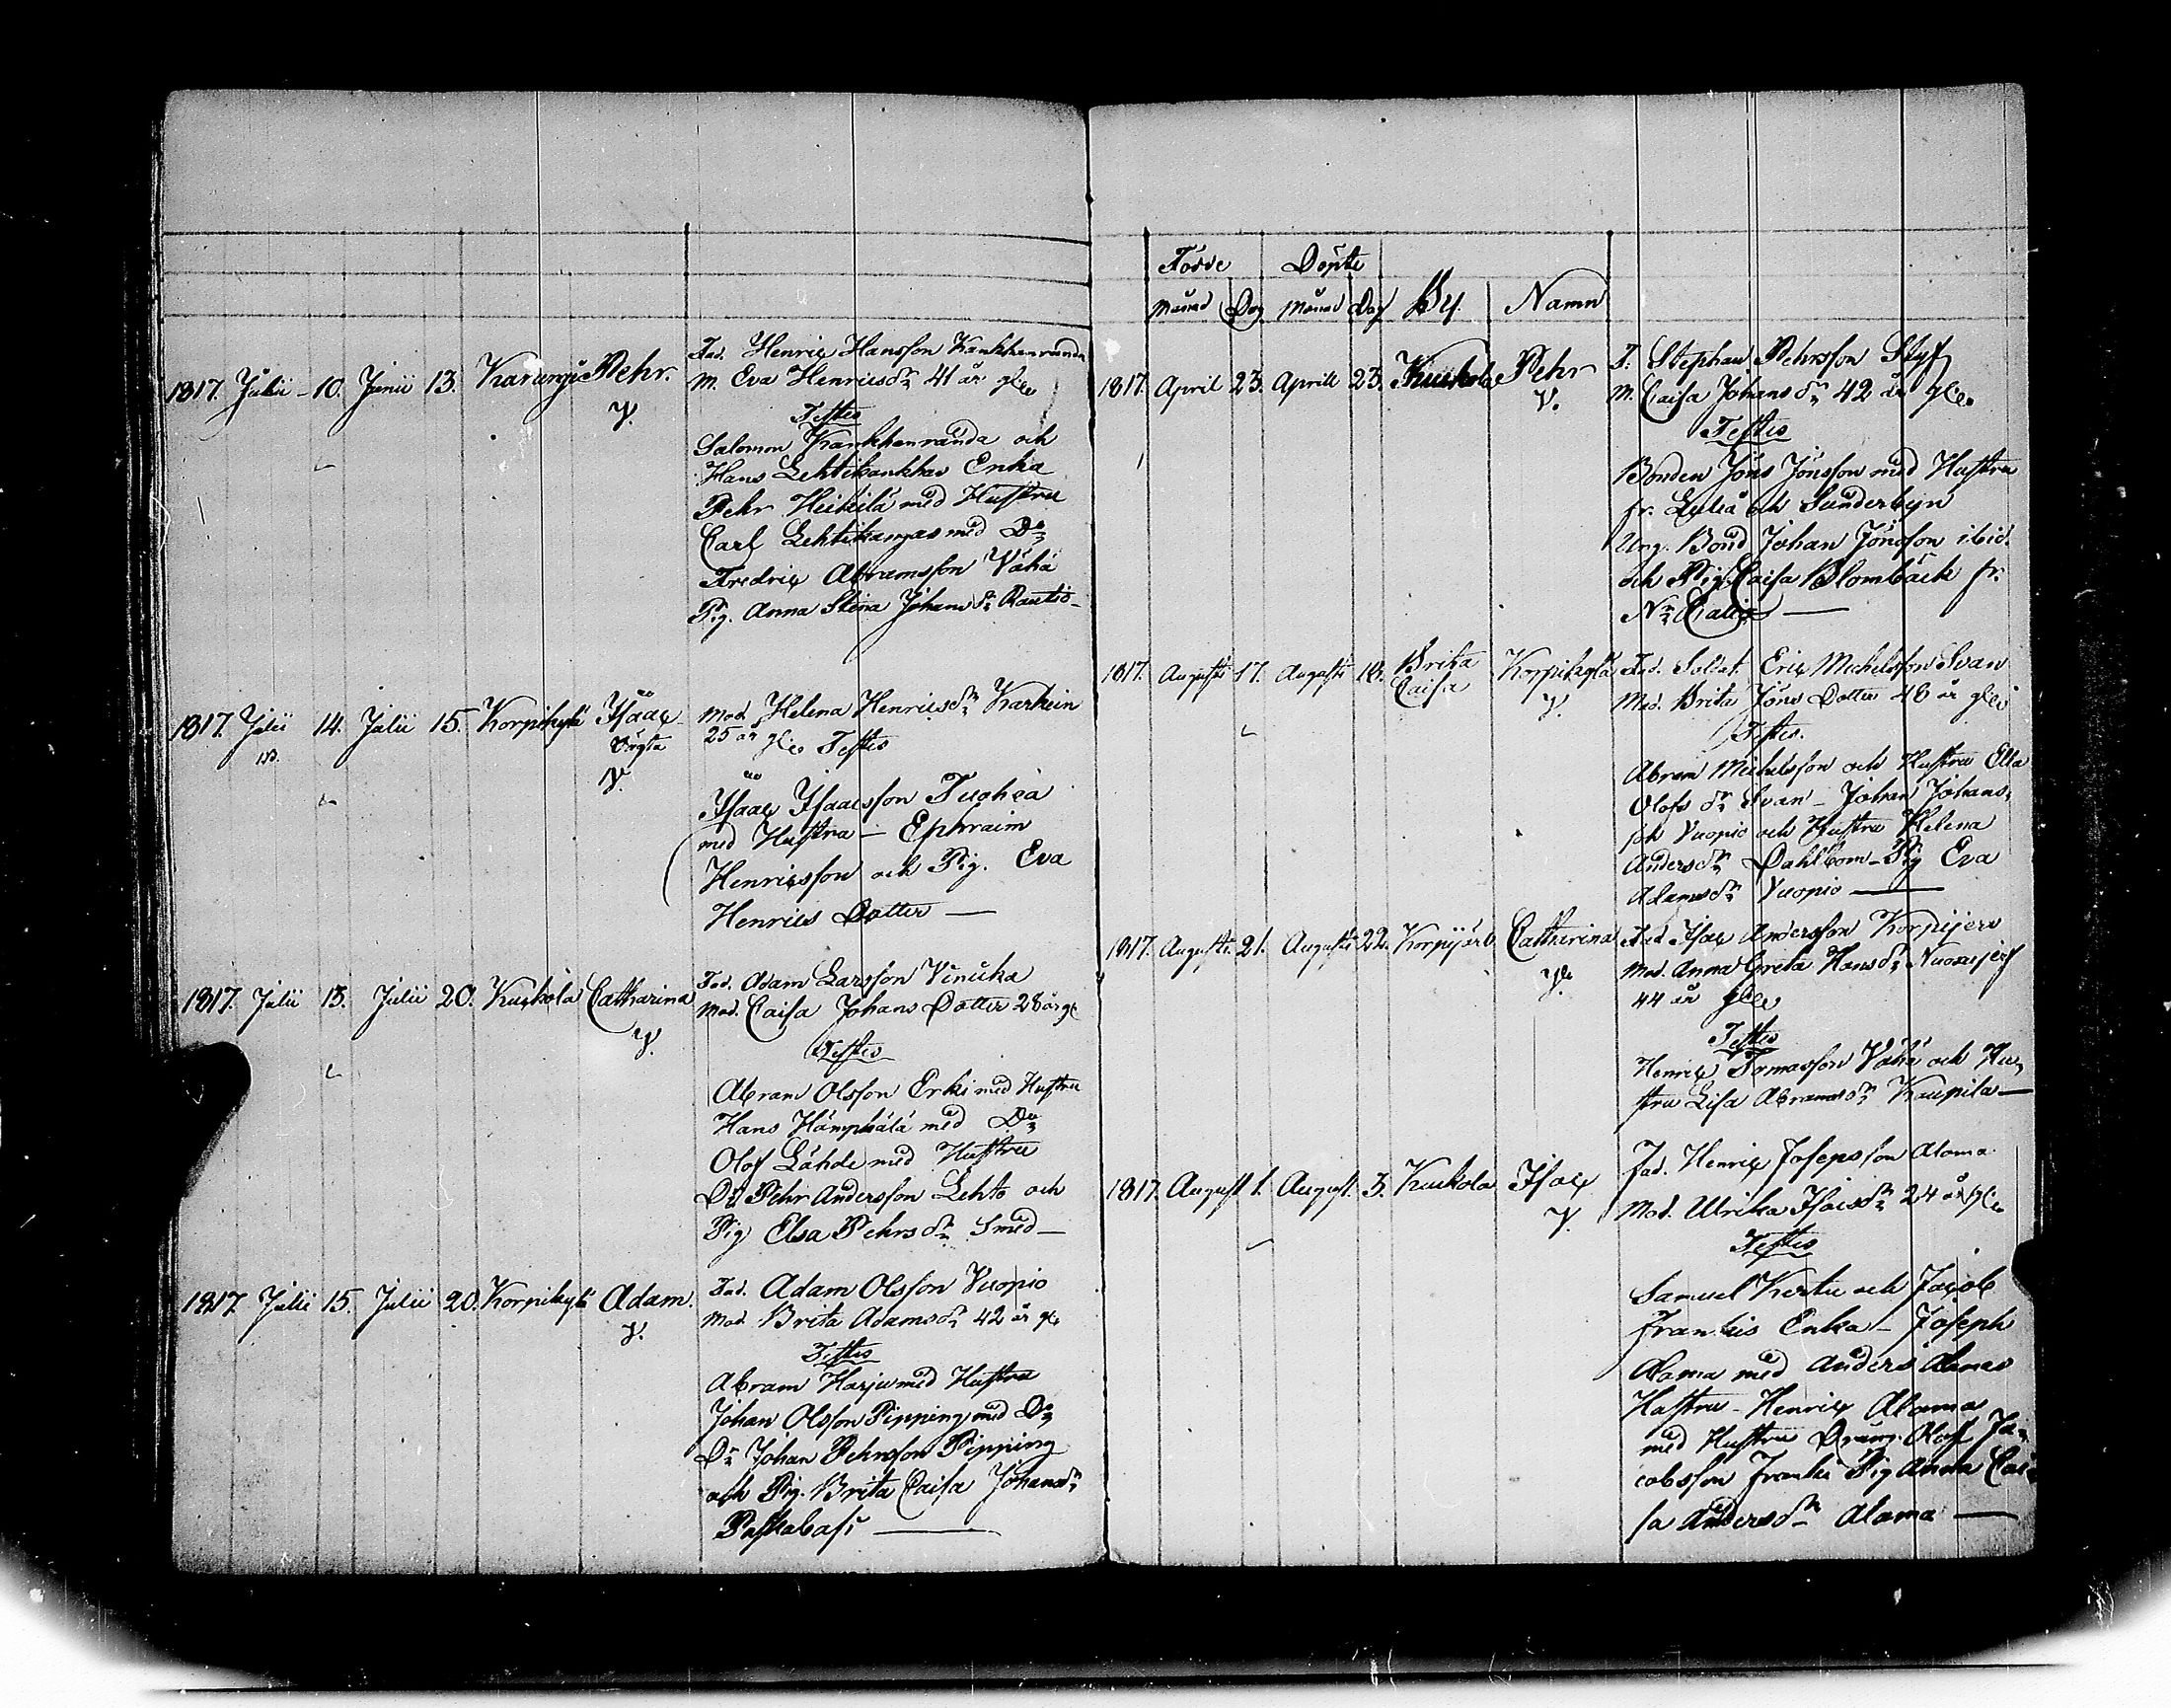 1817. Julii 10. Junii 13. Karungi Pehr. Fad. Henric Hansson Kankkanranda
V. M. Eva Henricsdr 41 år gl.
Testes
Salomon Kankkanranda och
Hans Lehtikankkas Enka
Pehr Heikilä med Hustru
Carl Lehtikangas med Do
Fredric Abramsson Vähä
Pig. Anna Stina Johansdr Rautio
1817. Julii 14. Julii 15. Korpikylä Isaac Mod. Helena Henricsdr Karhein
oägta 25 år gl. Testes
V.
Isaac Isaacsson
med Hustru – Ephraim
Henricsson och Pig. Eva
Henrics Dotter —
1817. Julii 13. Julii 20. Kuckola Catharina Fad. Adam Larsson Vinicka
V. Mod. Caisa Johans Dotter 28 år gl
Testes
Abram Olsson Erki med Hustru
Hans Hämphälä med Do
Olof Lähde med Hustru
Dr Pehr Andersson Lehto och
Pig Elsa Pehrsdr Smed —
1817. Julii 15. Julii 20. Korpikylä Adam. Fad. Adam Olsson Vuopio
V. Mod. Brita Adamsdr 42 år gl
Testes
Abram Harju med Hustru
Johan Olsson Pipping med Do
Dr Johan Pehrsson Pipping
och Pig. Brita Caisa Johansdr
—
Födde Döpte
Månad Dag Månad Dag By. Namn
1817. April 23. Aprill 23. Kuckola Pehr F. Stephan Pehrsson Styf
V. M. Caisa Johansdr 42 år gl.
Testes
Bonden Jöns Jönsson med Hustru
fr. Luleå och Sunderbyn
Ung. Bond Johan Jönsson ibid.
och Pig. Caisa Blombäck fr.
Nr Calix —
1817. Augusti 17. Augusti 18. Brita Caisa Korpikylä Fad. Soldat. Eric Michelsson Svan
V. Mod. Brita Jöns Dotter 48 år gl.
Testes.
Abram Michelsson och Hustru Ella
Olofsdr Svan – Johan Johans-
son Vuopio och Hustru Helena
Andersdr Dahlbom – Pig Eva
Adamsdr Vuopio —
1817. Augusti 21. Augusti 22. Korpijärv. Catharina Fad. Isac Andersson Korpijerv
V. Mod. Anna Greta Hansdr
44 år gl.
Testes
Henric Tomasson Vähä och Hu-
stru Lisa Abramsdr Kaupila —
1817. August 1. August. 3. Kuckola Isac Fad. Henric Josepsson Alama
V. Mod. Ulrika Isacsdr 24 år gl.
Testes
Samuel Kerttu och Jacob
Frankis Enka – Joseph
Alama med Anders Alamas
Hustru – Henric Alama
med Hustru Dräng. Olof Ja-
cobsson Franki Pig Anna Cai-
sa Andersdr Alama —